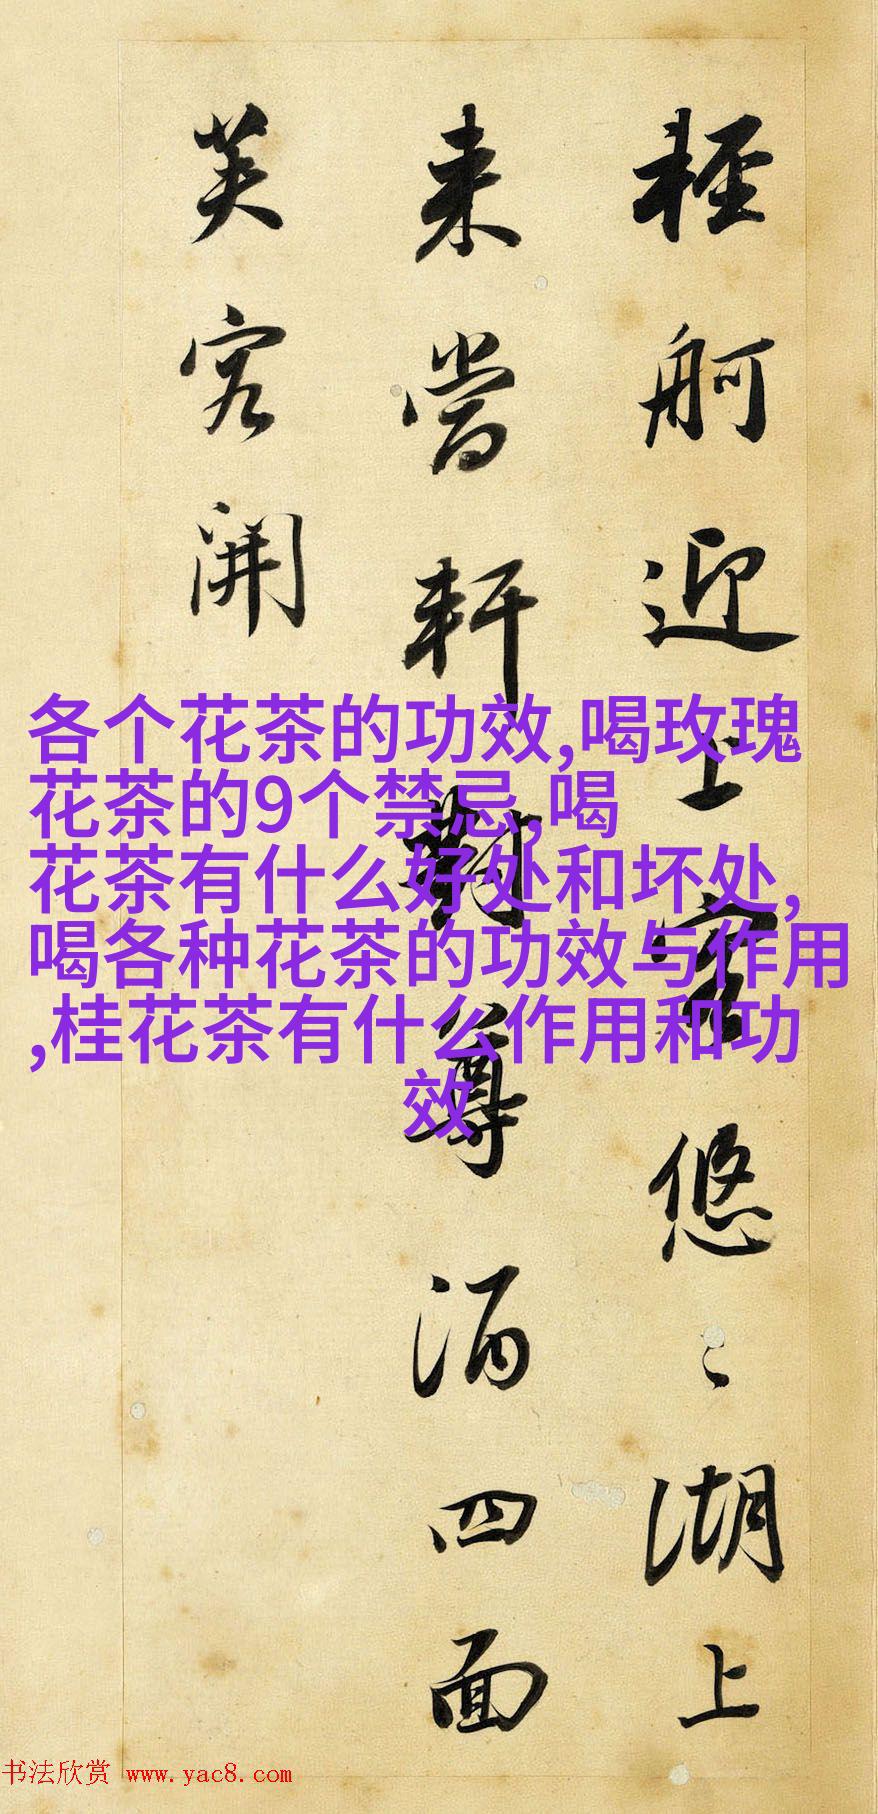 輕舸迎上客悠〻湖上
来當軒對尊酒四面
芙容開
各个花茶的功效,喝玫瑰
花茶的9个禁忌,喝
花茶有什么好处和坏处,
喝各种花茶的功效与作用
,桂花茶有什么作用和功
效
书法欣赏 www.yac8.com